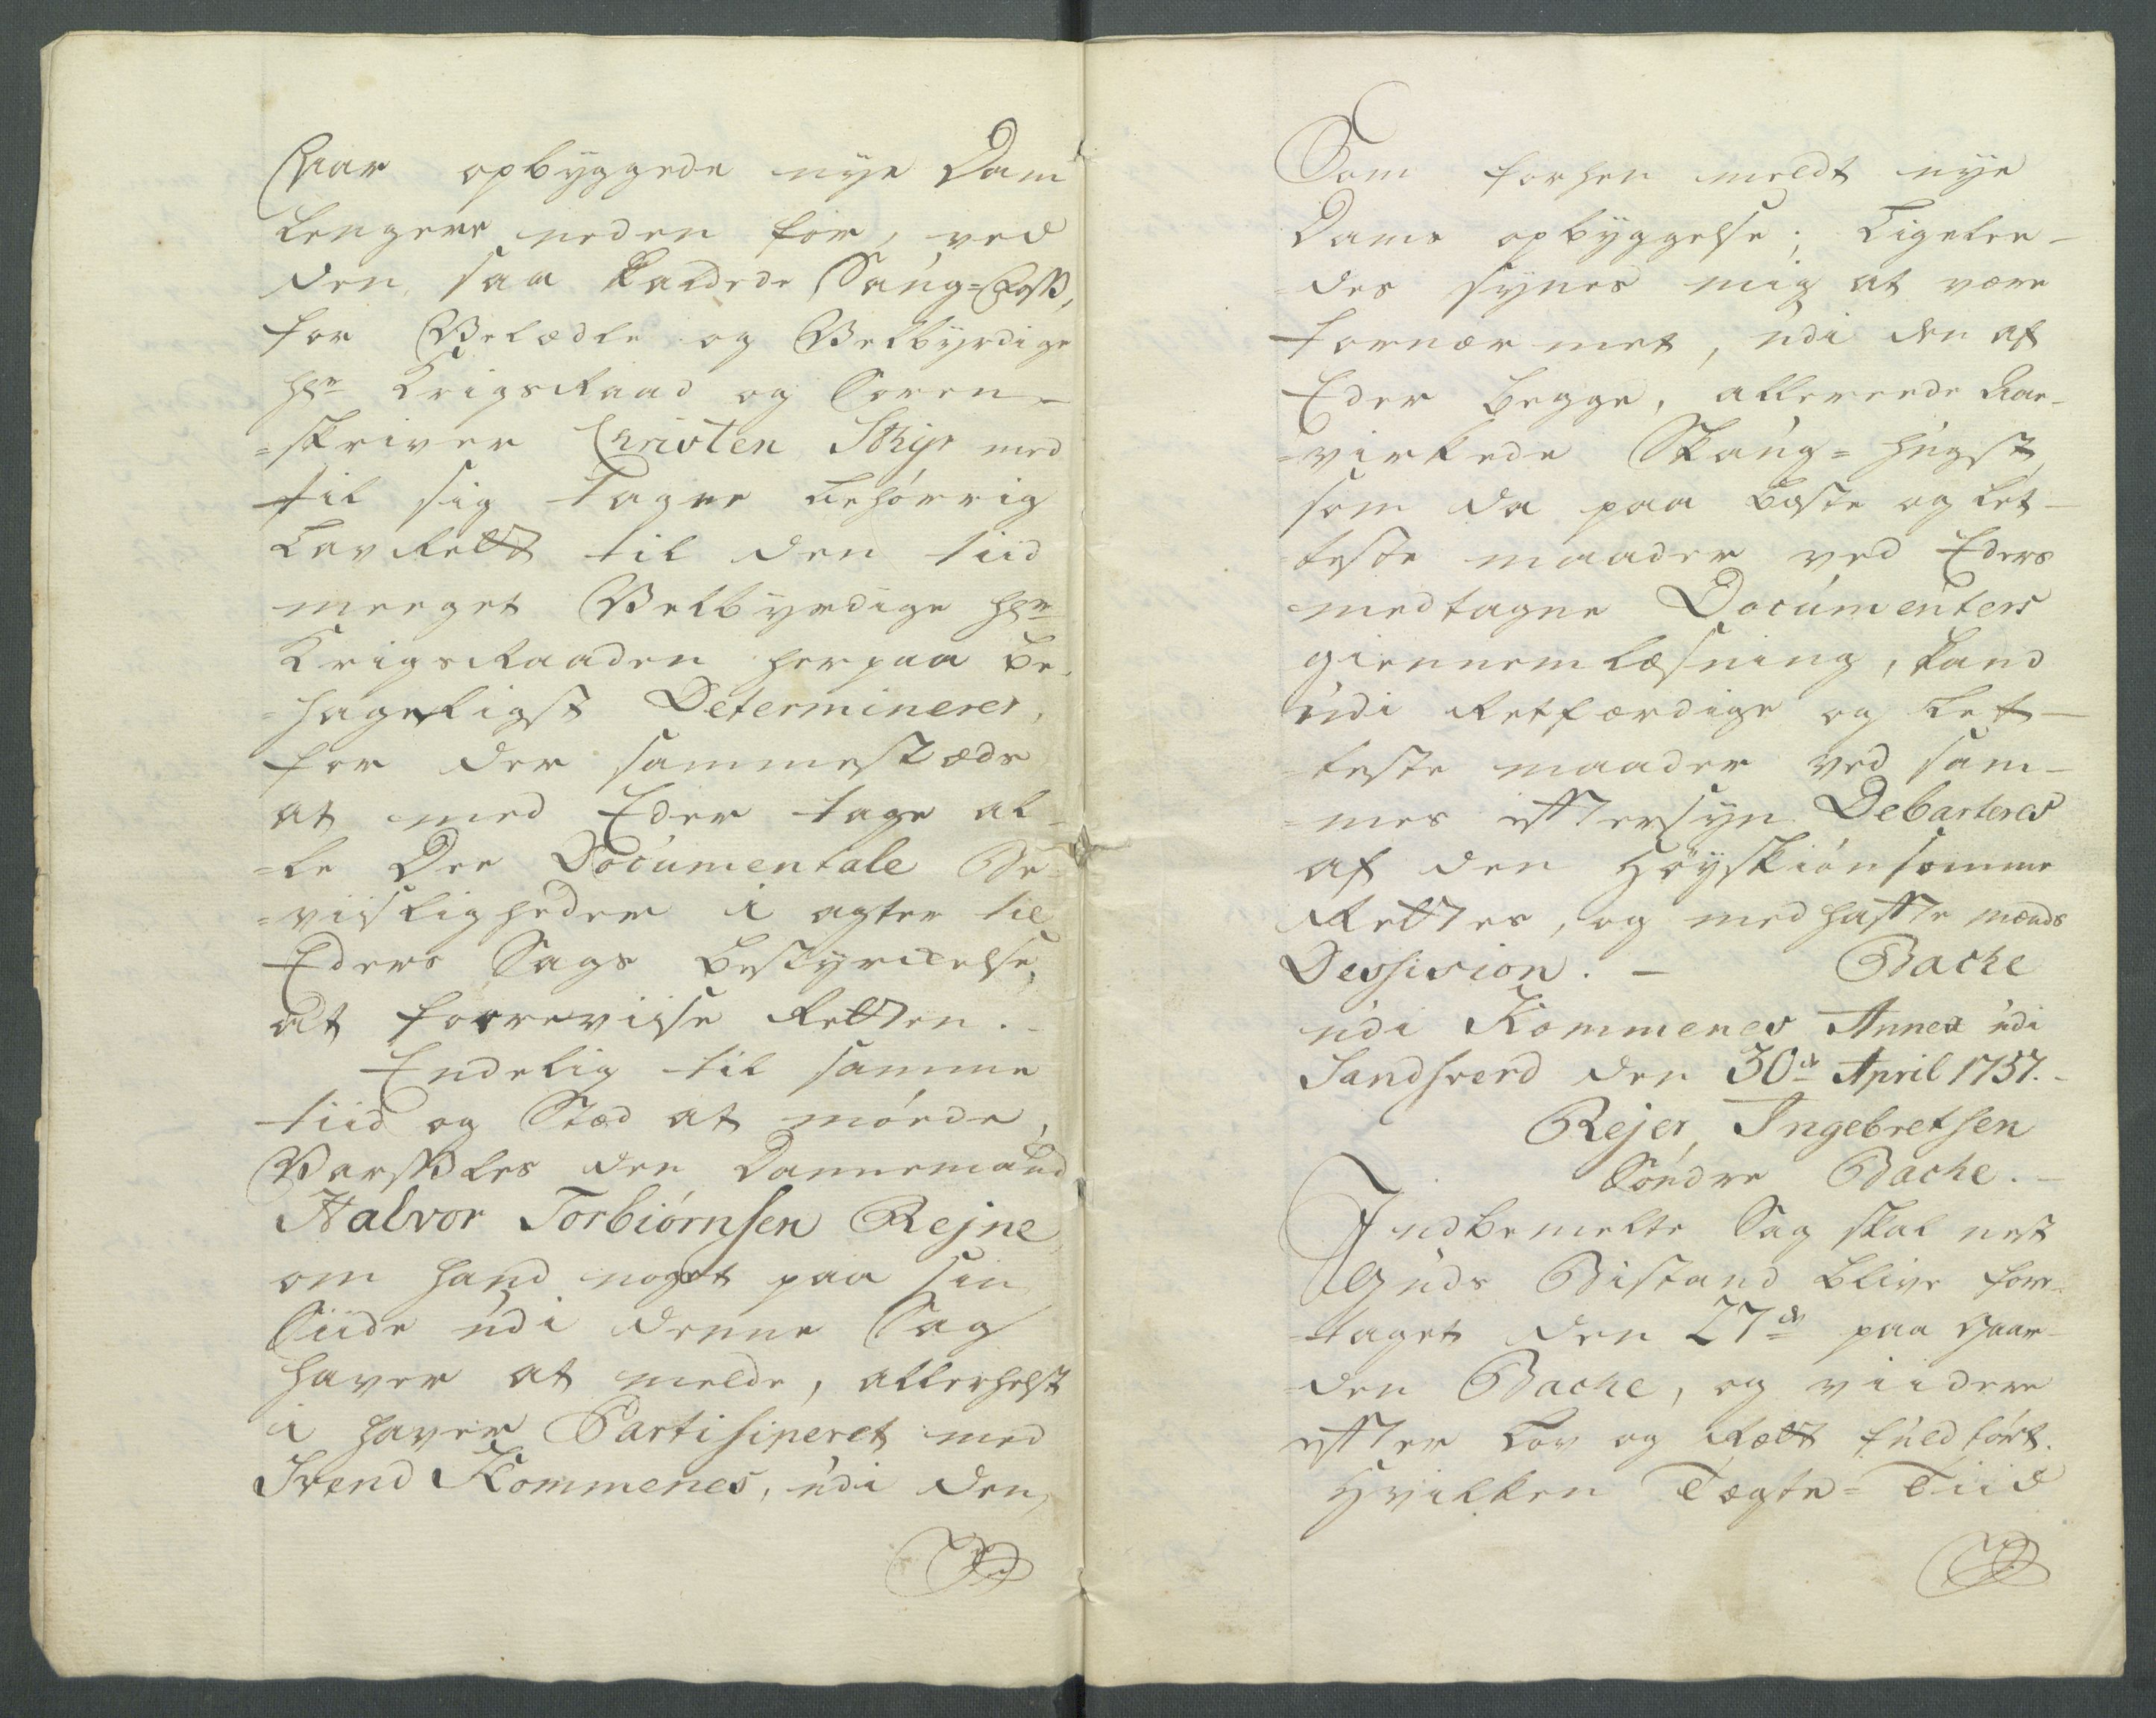 Aar opbyggede nye Dam
lengere neden for, ved
den saa kaldede Saug-Foss,
for Velædle og Velbyrdige
Hr Krigs Raad og Soren-
=skriver Christen Sthyr med
til sig tagne behørrig
Lav Rætt til den tiid
meeget Velbyrdige Hr
Krigs Raaden herpaa be-
=hageligst Determinerer,
for der sammestæds
at med Eder tage al-
=le Dee Documentale Be-
=visligheder i agter til
Eders Sags bestyrckelse,
at foorreviise Retten.
Endelig til samme
tiid og Stæd at møede,
Varssles den Dannemand
Halvor Torbiørnsen Rejne
om hand noget paa sin
Siide udi denne Sag
haver at melde, allerhelst
i haver Partisiperet med
Svend Kommenes, udi den,
Som forhen meldt nye
Dams opbyggelse; Ligelee-
=des synes mig at være
fornærmet, udi den af
Eder begge, allereede
=virkede Skaug-hugst,
som da paa beste og let-
=teste maader ved Eders
medtagne Documenters
giennemlæsning, kand
udi Retfærdige og let-
=teste maader ved sam-
=mes efftersyn Debarteres
af den Høyskiønsomme
Rettes, og medhaffte mænds
Dessision. - Bache
udi Kommenes Annex udi
Sandsverd den 30de April 1757.
Rejer Ingebretsen
Søndre Bache. -
Indbemelte Sag skal nest
Guds Bistand blive for-
=taget den 27de paa Gaar-
=den Bache, og viidere
effter Lov og Rætt fuldført.
Hvilken Tægte-Tiid